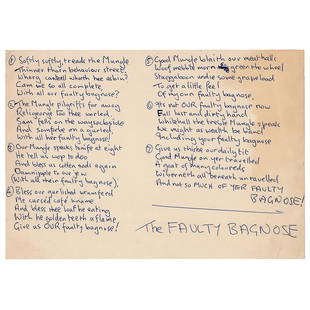 ① Softly softly treads the Mungle
Thinner thorn behaviour street.
Whorg canteell whorth hee eshin?
Cam we so all complete,
With all our faulty bagnose?
② The Mungle pilgriffs far awoy
Religeorge too thee worled.
Sam fells on the waysockside
And somforbe on a gurled,
With all her faulty bagnose!
③ Our Mungle speaks tonife at eight
He tell us wop to doo
And bless us cotten sods again
Oamnipple to our jew
(With all their faulty bagnose).
④ Bless our gurlished wramfeed
Me cursed café kname
And bless thee loaf he eating
With he golden teeth aflame
Give us OUR faulty bagnose!
⑤ Good Mungle blaith our meathalls
Woof mebble morn so green the wheel
Staggaboon undie some grapeload
To get a little feel
of my own faulty bagnose.
⑥ Its not OUR faulty bagnose now
Full lust and dirty hand
Whitehall the treble Mungle speak
We might as wealth be band
Including your faulty bagnose
⑦ Give us thisbe our daily tit
Good Mungle on yer travelled
A goat of many coloureds
Wiberneth all beneath unravelled
And not so MUCH OF YER FAULTY
BAGNOSE!
The FAULTY BAGNOSE